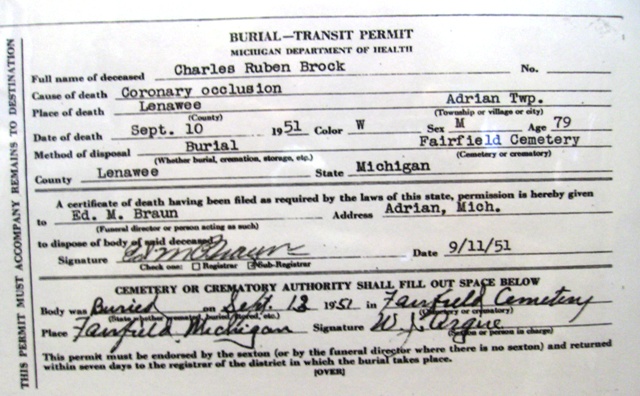 BURIAL—TRANSIT PERMIT
MICHIGAN DEPARTMENT OF HEALTH
Full name of deceased Charles Ruben Brock No.
Cause of death Coronary occlusion
Place of death Lenawee Adrian Twp.
(County) (Township or village or city)
Date of death Sept. 10 1951 Color W Sex M Age 79
Method of disposal Burial Fairfield Cemetery
(Whether burial, cremation, storage, etc.) (Cemetery or crematory)
County Lenawee State Michigan
A certificate of death having been filed as required by the laws of this state, permission is hereby given
to Ed. M. Braun Address Adrian, Mich.
(Funeral director or person acting as such)
to dispose of body of said deceased.
Signature Ed M Braun Date 9/11/51
Check one: Registrar Sub-Registrar
CEMETERY OR CREMATORY AUTHORITY SHALL FILL OUT SPACE BELOW
Body was Buried on Sept. 12 1951 in Fairfield Cemetery
(State whether cremated, buried, stored, etc.) (Cemetery or crematory)
Place Fairfield Michigan Signature W. J. Argue
(Sexton or person in charge)
This permit must be endorsed by the sexton (or by the funeral director where there is no sexton) and returned
within seven days to the registrar of the district in which the burial takes place.
(OVER)
THIS PERMIT MUST ACCOMPANY REMAINS TO DESTINATION